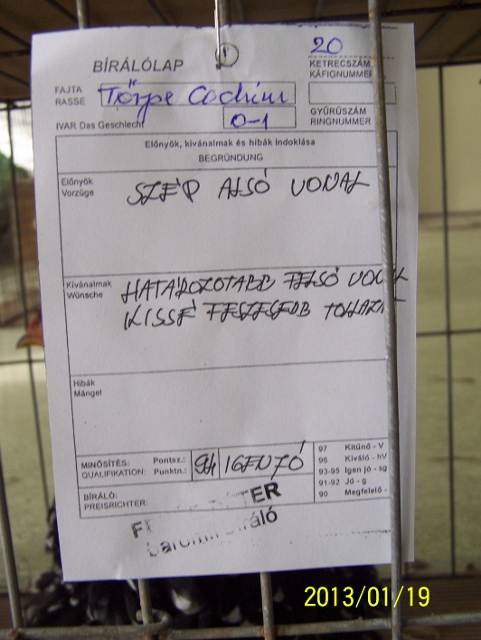 BÍRÁLÓLAP
20
KETRECSZÁM
KÄFIGNUMMER
FAJTA
RASSE
Törpe Cochin
GYŰRŰSZÁM
RINGNUMMER
IVAR Das Geschlecht
0-1
Előnyök, kívánalmak és hibák indoklása
BEGRÜNDUNG
Előnyök
Vorzüge
SZÉP ALSÓ VONAL
Kívánalmak
Wünsche
HATÁROZOTABB FELSŐ VONAL
KISSÉ FESZESEBB
Hibák
Mängel
MINŐSÍTÉS: Pontsz.:
QUALIFIKATION: Punktn.:
94 IGEN JÓ
97 Kitűnő - V
96 Kiváló - hV
93-95 Igen jó - sg
91-92 Jó - g
90 Megfelelő -
BÍRÁLÓ:
PREISRICHTER:
TER
baromfi bíráló
2013/01/19